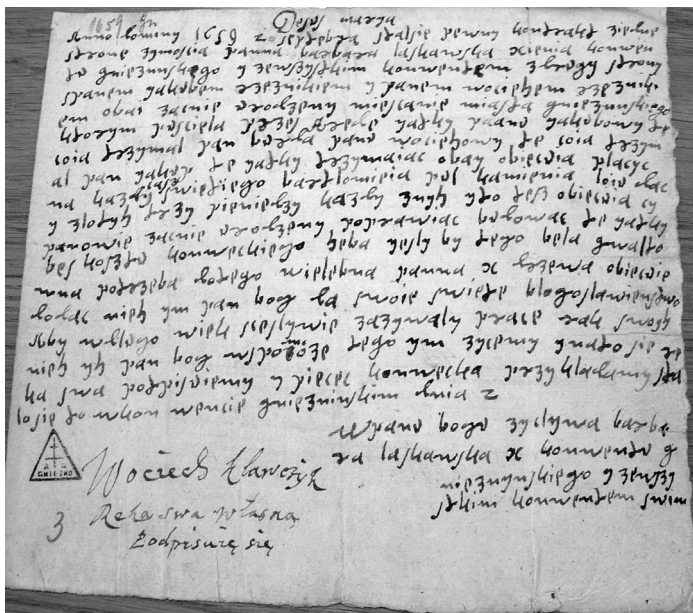 1659
Jesus marya
Anno Domini 1659 2 septebra stalsie pewny kontrakt ziedne
strone zymoscia panna barbara laskawska xienia konwen
tu gnieznuskego y zewszystkim konwentem z drugy strony
spanem yakobem rzeznikiem y panem wociehem rzezniki
em obai zacnie urodzeny miescanie miasta gnieznuskiego
ktorym pusciela przes arede yatky panu yakobowy te
coia trzymal pan barla panu wociehowy te coia trzym
al pan yakop te yatky trzymaiac obay obiecuia placyc
na kazdy swietego bartlomieia pul kamienia loiu dac
y zlotyh trzy pieniedzy kazdy znyh yto tesz obiecuia cy
panowie zacnie urodzeny poprawiac budowac te yatky
bes kosztu konweckiego heba yesly by tego bela gwalto
wna potrzeba dotego wielebna panna x drzewa obiecuie
dodac nieh ym pan bog da swoie swiete blogoslawienstwo
aby wdlugo wiek scesliwie zazywaly prace rak swoyh
nieh yh pan bog wspomoze tego ym zycemy ynato sie re
ka swa potpisuiemy y piecec konwecka przykladamy sta
losie to wkon wencie gniezninskim dnia 2
Wpanu bogu zyclywa barba
ra laskawska x konwentu g
nieznynskiego y zewszy
stkim konwentem swim
GNIEZNO
Wociech Klawczyk
Reka swa własną
Podpisuię się
3